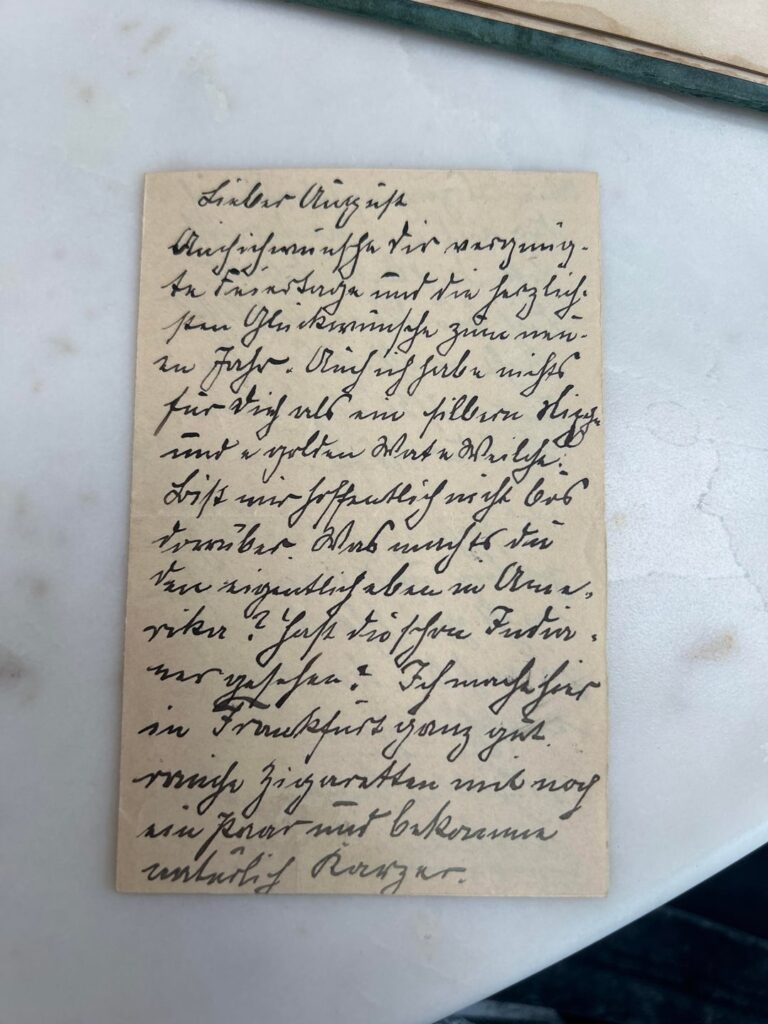 Lieber August
Auch ich wünsche dir vergnüg-
te Feiertage und die herzlich-
sten Glückwünsche zum neu-
en Jahr. Auch ich habe nichts
für Dich als ein silbern
und e golden Wart e Weilche.
Bist mir hoffentlich nicht bös
darrüber. Was machts du
den eigentlich eben in Ame-
rika? Hast du schon India-
ner gesehen? Ich mache hier
in Frankfurt ganz gut
rauche Zigaretten mit noch
ein Paar und bekomme
natürlich Karzer.